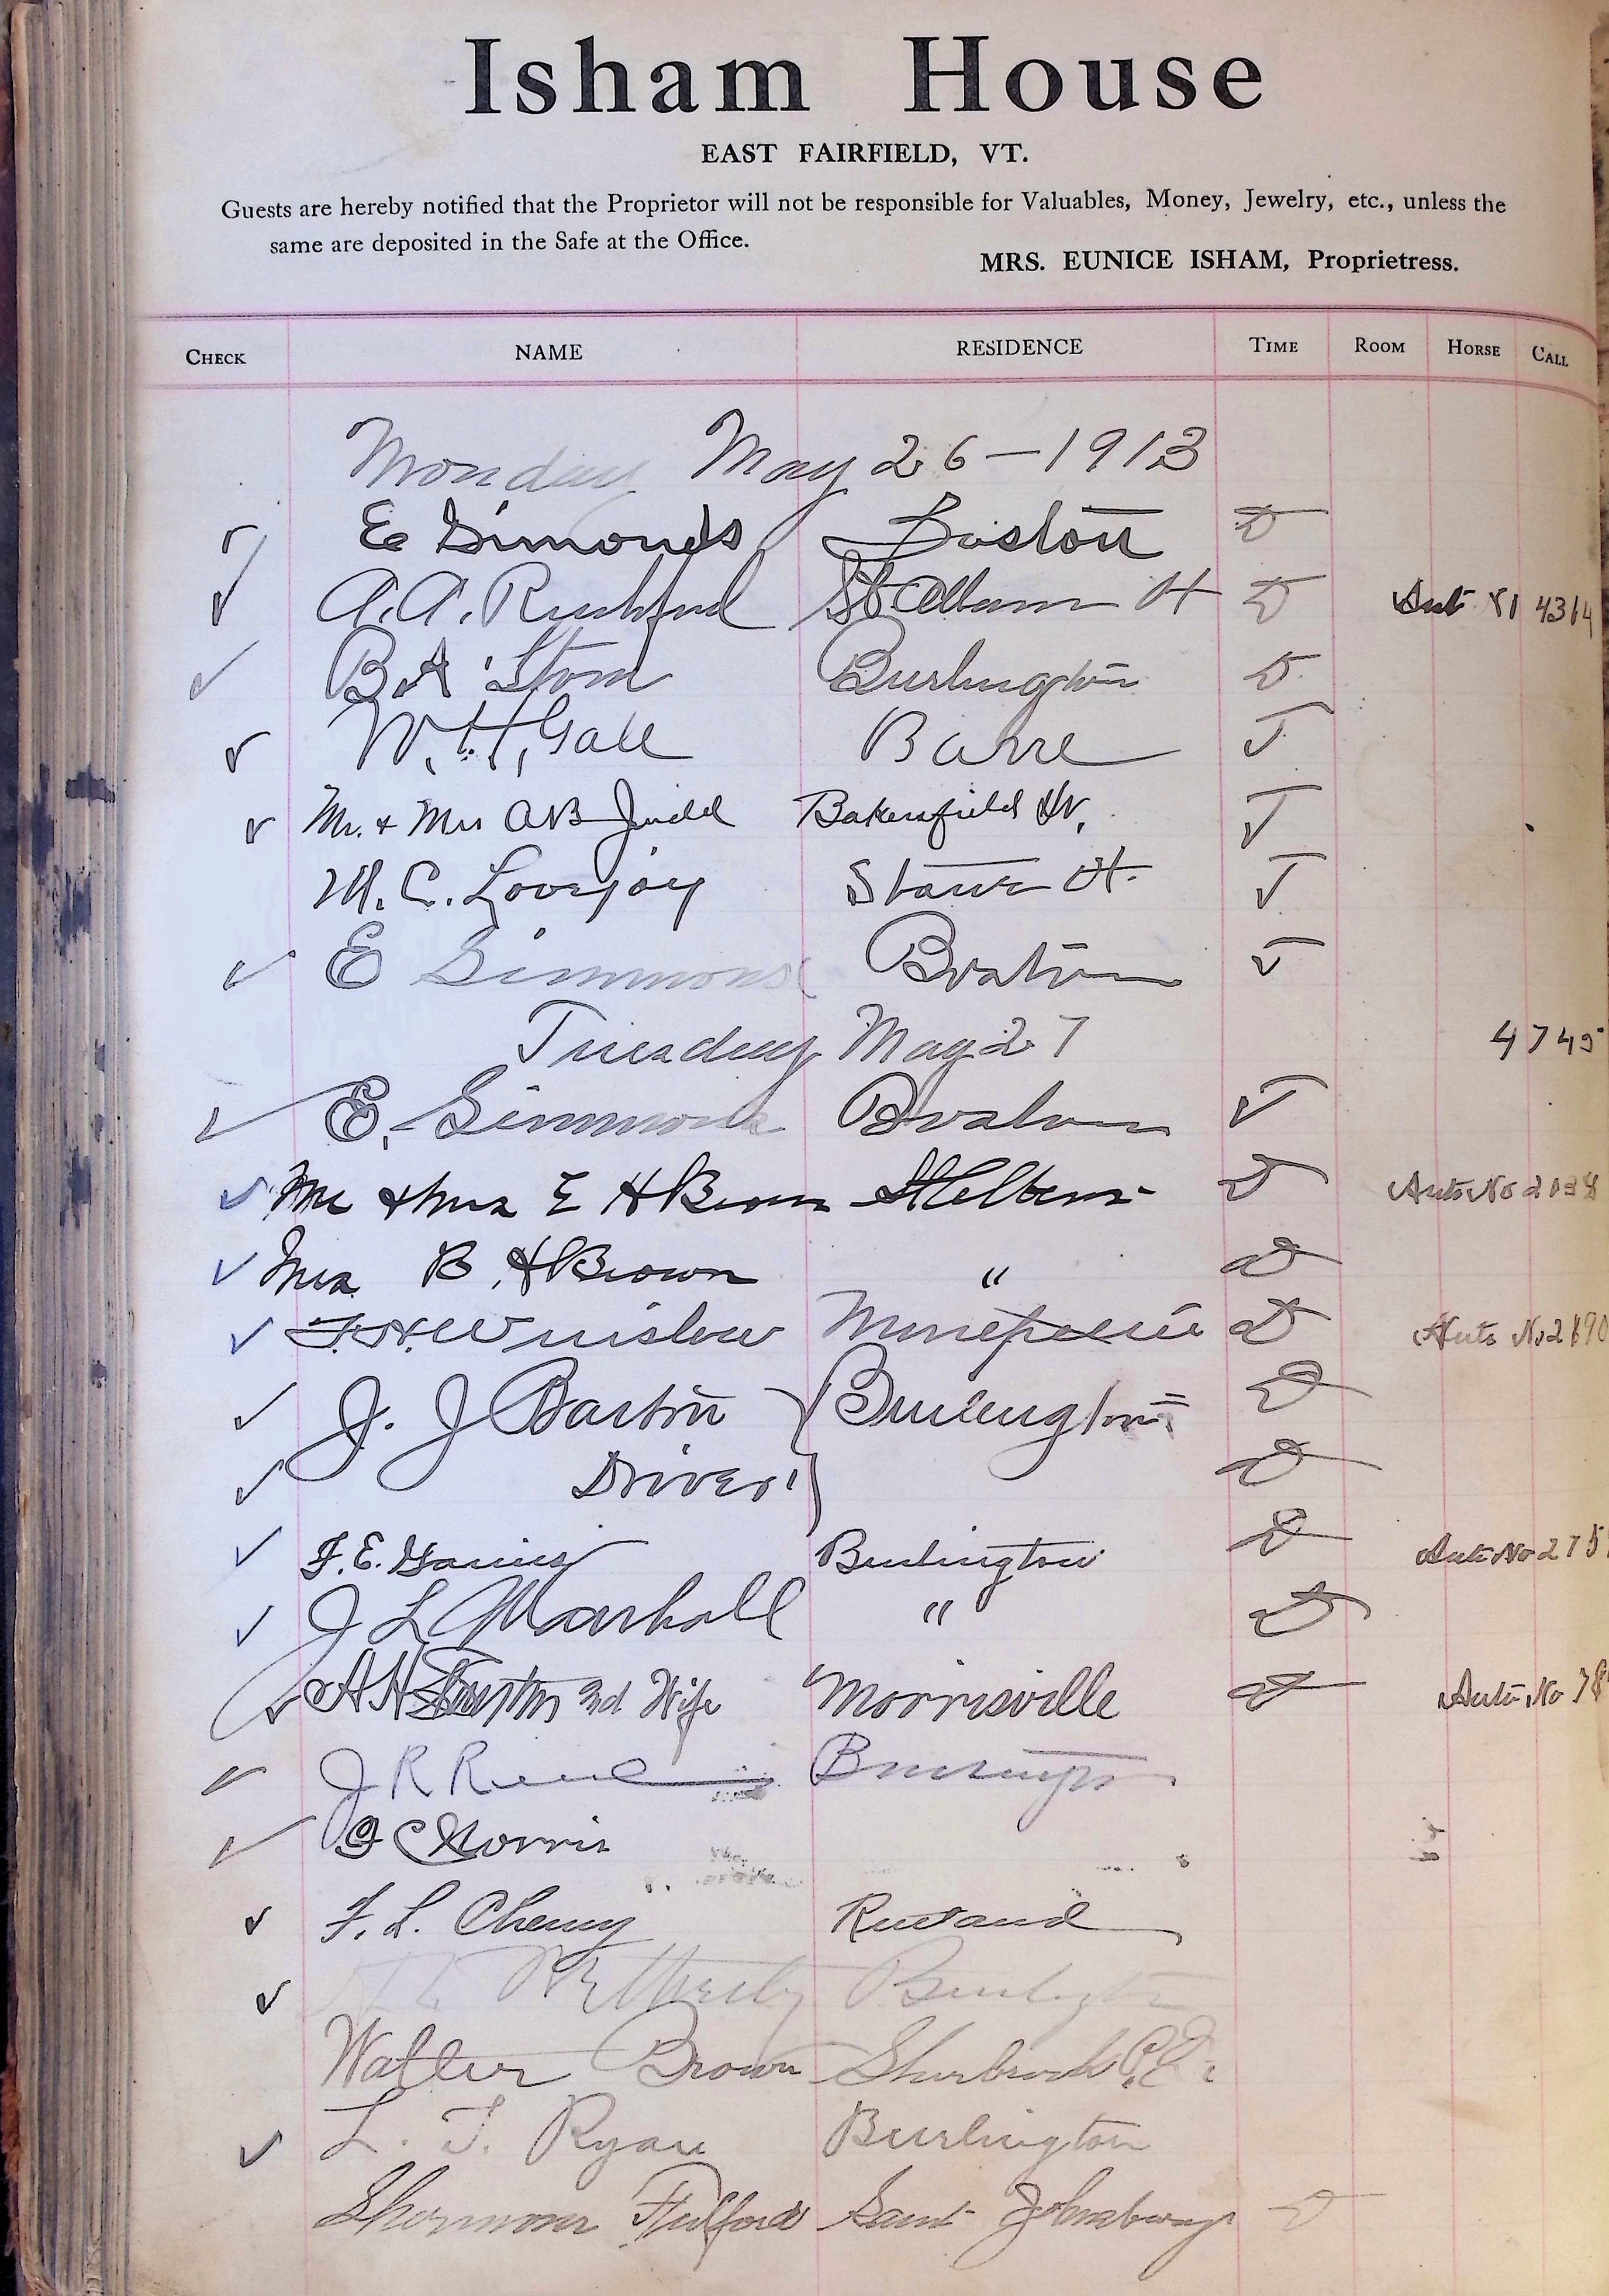 Isham House
EAST FAIRFIELD, VT.
Guests are hereby notified that the Proprietor will not be responsible for Valuables, Money, Jewelry, etc., unless the
same are deposited in the Safe at the Office.
MRS. EUNICE ISHAM, Proprietress.
CHECK NAME RESIDENCE TIME ROOM HORSE CALL
Monday May 26 - 1913
E Simonds Boston D
A. A. St Albans D 4314
B A Burlington D
W. H. Gale Barre
Mr. & Mrs A B Judd Bakersfield
M. C. Lovejoy Stowe Vt.
E Simmons Boston
Tuesday May 27 4745
E. Simmons Boston
Mr & Mrs E H Brown St Albans D Auto No 2038
Mrs B H Brown " D
F. H. Winslow D Auto No 2890
J. J. Bartin Burlington D
Driver D
F. E. Burlington D Auto No 275
J L Marshall " D
A H and Wife Morrisville Auto No 78
J R Burlington
G C Morris
F. L. Cheney Rutland
Burlington
Walter Brown Sherbrook P.Q.
L. J. Ryan Burlington
Fulford Saint Johnsbury D